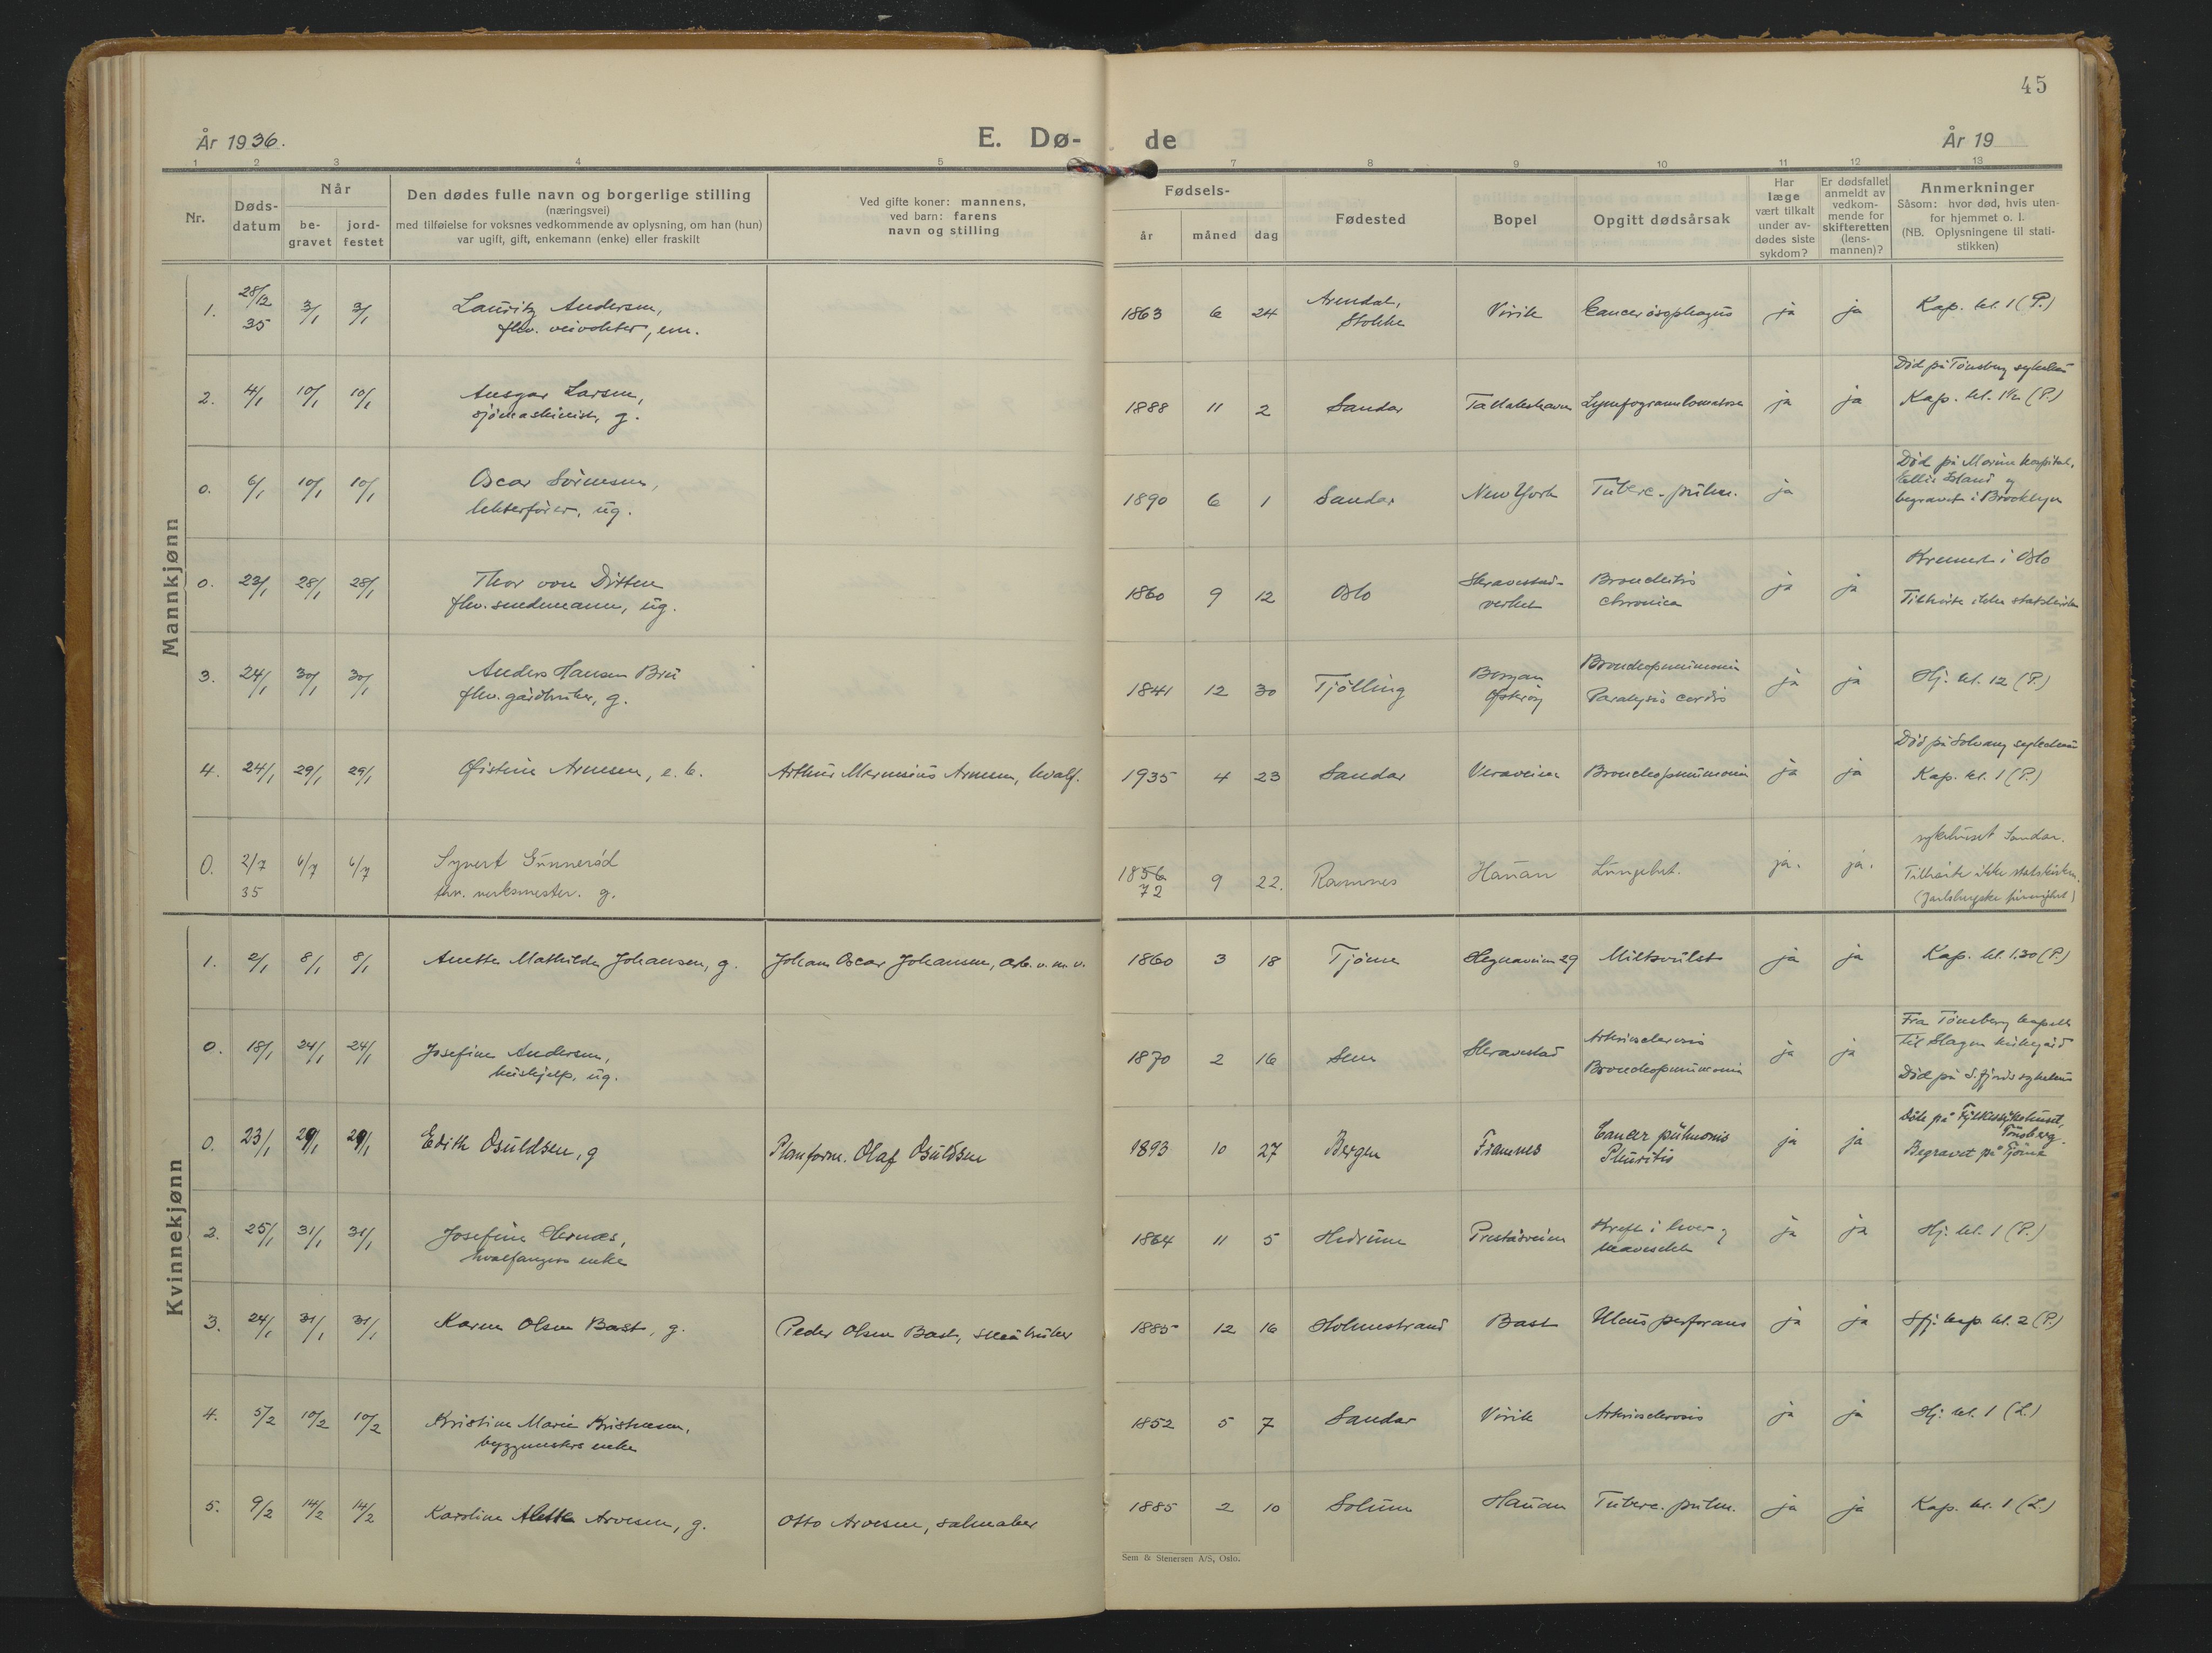 45
År 1936.
E. Dø- de
År 19
1 2 3 4 5 7 8 9 10 11 12 13
Nr.
Døds-
datum
Når
be-
gravet
jord-
festet
Den dødes fulle navn og borgerlige stilling
(næringsvei)
med tilføielse for voksnes vedkommende av oplysning, om han (hun)
var ugift, gift, enkemann (enke) eller fraskilt
Ved gifte koner: mannens,
ved barn: farens
navn og stilling
Fødsels-
år måned dag
Fødested
Bopel
Opgitt dødsårsak
Har
læge
vært tilkalt
under av-
dødes siste
sykdom?
Er dødsfallet
anmeldt av
vedkom-
mende for
skifteretten
(lens-
mannen)?
Anmerkninger
Såsom: hvor død, hvis uten-
for hjemmet o. l.
(NB. Oplysningene til stati-
stikken)
Mannkjønn
1. 28/12 35 3/1 3/1 Lauritz Andersen,
fhv. veivokter, em.
1863 6 24 Arendal, Stokke Virik Cancer øsophagus ja ja Kap. kl. 1 (P.)
2. 4/1 10/1 10/1 Ansgar Larsen,
sjømaskinist, g.
1888 11 2 Sandar Lymfogranulomatose ja ja Død på Tønsberg sykehus
Kap. kl. 1½ (P.)
0. 6/1 10/1 10/1 Oscar Sørensen,
lekterfører, ug.
1890 6 1 Sandar New York Tuberc. pulm. ja Død på Marine hospital,
Ellis Island og
begravet i Brooklyn
0. 23/1 28/1 28/1 Thor von Ditten
fhv. sendemann, ug.
1860 9 12 Oslo Skravestad-
verket Bronchitis
chronica ja ja Kremert i Oslo
Tilhørte ikke statskirken
3. 24/1 30/1 30/1 Anders Hansen Bru
fhv. gårdbruker, g.
1841 12 30 Tjølling Bergan
Østerøy Bronchopneumonia
Paralysis cordis ja ja Hj. kl. 12 (P.)
4. 24/1 29/1 29/1 Øistein Arnesen, e. b. Arthur Marensius Arnesen, hvalf.
1935 4 23 Sandar Veraveien Bronchopneumonia ja ja Død på Solvang sykehus
Kap. kl. 1 (P.)
0. 2/7 35 6/7 6/7 Syvert Gunnerød
fhv. verksmester. g.
1856 72 9 22. Ramnes Hauan Lungebet. ja. ja. sykehuset Sandar.
Tilhørte ikke statskirken.
(Jarlsbergske frimenighet)
Kvinnekjønn
1. 2/1 8/1 8/1 Anette Mathilde Johansen, g. Johan Oscar Johansen, arb. v. m. v.
1860 3 18 Tjøme Hegnaveien 29 Miltsvulst ja ja Kap. kl. 1.30 (P.)
0. 18/1 24/1 24/1 Josefine Andersen,
hushjelp, ug.
1870 2 16 Sem Skravestad Arteriosclerosis
Bronchopneumonia ja ja Fra Tønsberg kapell
til Slagen kirkegård
Død på S.fjords sykehus
0. 23/1 29/1 29/1 Edith Osuldsen, g Planform. Olaf Osuldsen
1893 10 27 Bergen Framnes Cancer pulmonis
Pleuritis ja ja Døde på Fylkessykehuset,
Tønsberg.
Begravet på Tjøme
2. 25/1 31/1 31/1 Josefine Hernæs,
hvalfangers enke
1864 11 5 Hedrum Preståsveien Kreft i lever og
mavesekk ja ja Hj. kl. 1 (P.)
3. 24/1 31/1 31/1 Karen Olsen Bast, g. Peder Olsen Bast, småbruker
1885 12 16 Holmestrand Bast Ulcus perforans ja ja Sfj. kap. kl. 2 (P.)
4. 5/2 10/2 10/2 Kristine Marie Kristensen,
byggmesters enke
1852 5 7 Sandar Virik Arteriosclerosis ja ja Hj. kl. 1 (L.)
5. 9/2 14/2 14/2 Karoline Alette Arvesen, g. Otto Arvesen, salmaker
1885 2 10 Solum Hauan Tuberc. pulm. ja ja Kap. kl. 1 (L.)
Sem & Stenersen A/S, Oslo.